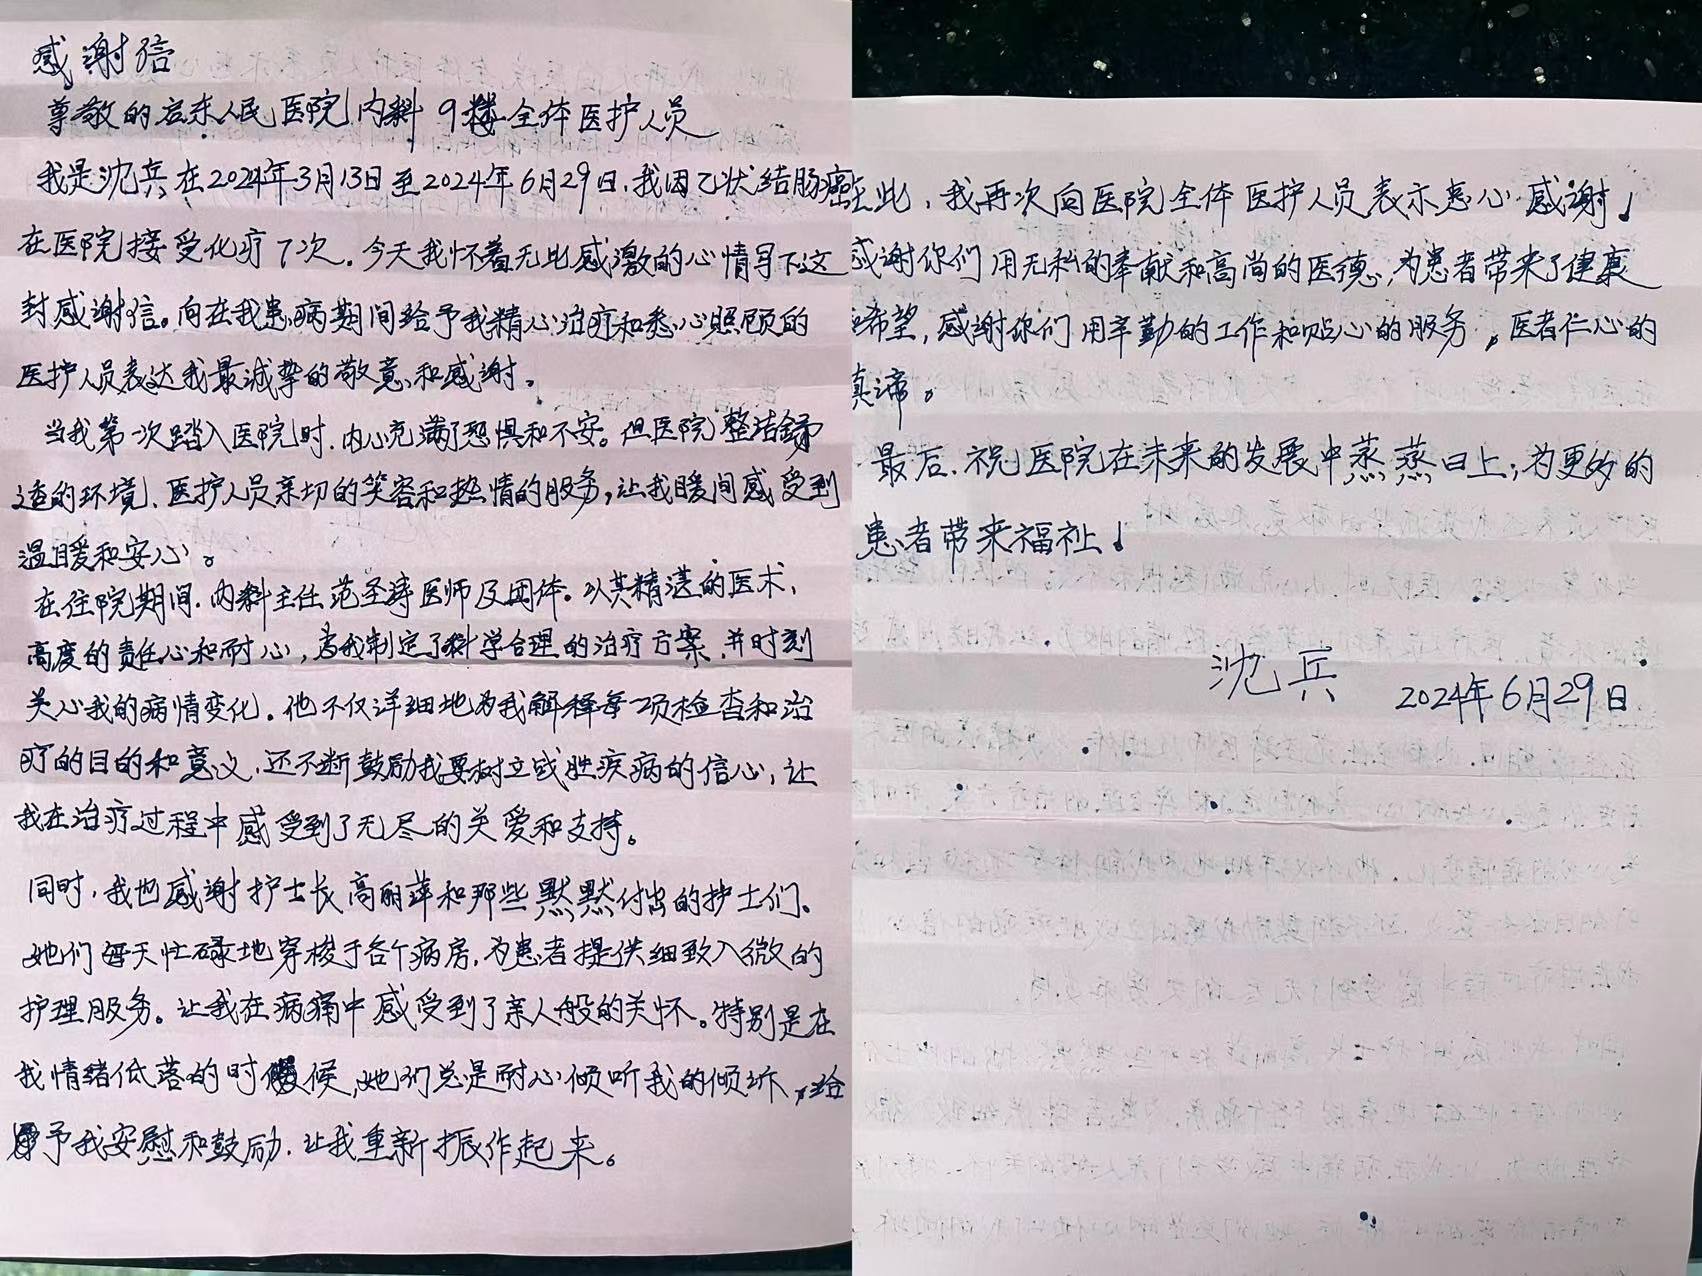 感谢信
尊敬的启东人民医院内科9楼全体医护人员
我是沈兵在2024年3月13日至2024年6月29日,我因乙状结肠癌
在医院接受化疗7次.今天我怀着无比感激的心情写下这
封感谢信。向在我患病期间给予我精心治疗和悉心照顾的
医护人员表达我最诚挚的敬意和感谢。
当我第一次踏入医院时,内心充满了恐惧和不安。但医院整洁舒
适的环境、医护人员亲切的笑容和热情的服务,让我瞬间感受到
温暖和安心。
在住院期间.内科主任范圣涛医师及团体.以其精湛的医术,
高度的责任心和耐心,为我制定了科学合理的治疗方案,并时刻
关心我的病情变化.他不仅详细地为我解释每一项检查和治
疗的目的和意义,还不断鼓励我要树立战胜疾病的信心,让
我在治疗过程中感受到了无尽的关爱和支持。
同时,我也感谢护士长高丽萍和那些默默付出的护士们。
她们每天忙碌地穿梭于各个病房,为患者提供细致入微的
护理服务。让我在病痛中感受到了亲人般的关怀。特别是在
我情绪低落的时候,她们总是耐心倾听我的倾诉,给
予我安慰和鼓励.让我重新振作起来。
在此,我再次向医院全体医护人员表示衷心感谢!
感谢你们用无私的奉献和高尚的医德,为患者带来了健康
和希望,感谢你们用辛勤的工作和贴心的服务,医者仁心的
真谛。
最后.祝医院在未来的发展中蒸蒸日上,为更多的
患者带来福祉!
沈兵 2024年6月29日